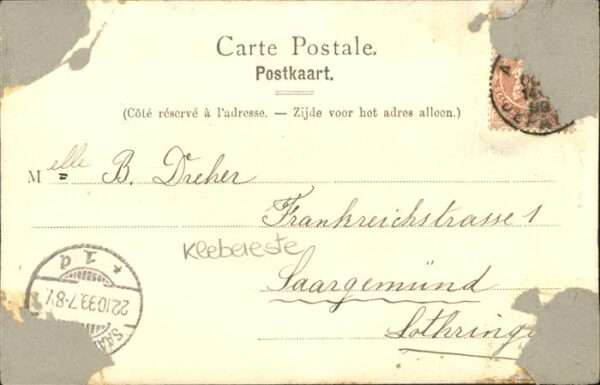 Carte Postale.
Postkaart.
(Côté réservé à l'adresse. — Zijde voor het adres alleen.)
Melle B. Dreher
Frankreichstrasse 1
Klebereste
Saargemünd
Lothringe
1d
22.10.99.7-8V.
SAA